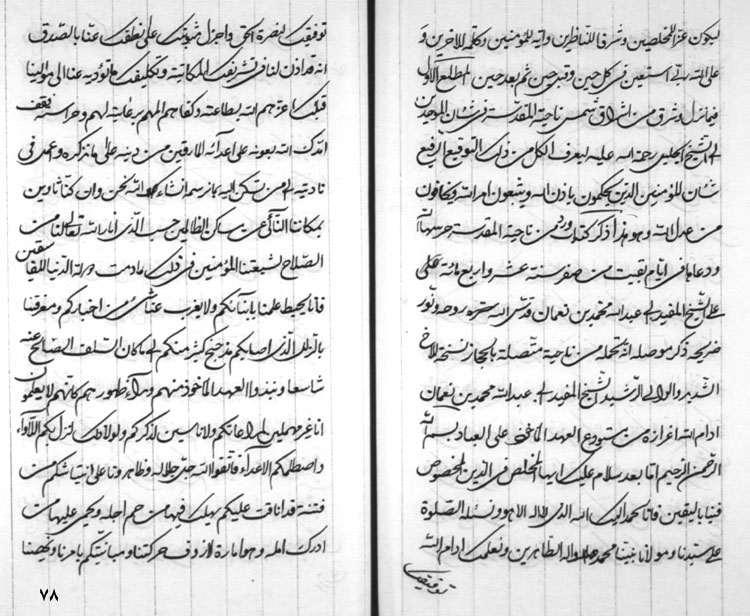 ليكون عز للمخلصين وشرفا للناظرين واية للمؤمنين وكلمة للاخرين و
على الله ربى استعين فى كل حين وقبر حين ثم بعد حين المطلع الاول
فيما نزل وشرق من اشراق شمس ناحية المقدسة فى شان الموحدين
الشيخ الجليل رحمة الله عليه ليعرف الكل من ذلك التوقيع الرفيع
شان المؤمنين الذين يحكمون باذن الله ويتبعون امر الله ويخافون
من عدل الله وهو هذا ذكر كتاب ورد من ناحية المقدسة حرسها الله
ودعاها فى ايام بقيت من صفر سنة عشر واربع مائة على
على الشيخ المفيد ابى عبدالله محمد بن نعمان قدس الله سره روحه ونور
ضريحه ذكر موصله انه تحمله من ناحية متصلة بالحجاز نسخته للاخ
السديد والوالى الرشيد الشيخ المفيد ابى عبدالله محمد بن نعمان
ادام الله اعزازه من مستودع العهد الماخوذ على العباد بسم الله
الرحمن الرحيم اما بعد سلام عليك ايها المخلص فى الدين المخصوص
فينا باليقين فانا نحمد اليك الله الذى لا اله الا هو ونسئله الصلوة
على سيدنا ومولانا نبينا محمد واله الطاهرين ونعلمك ادام الله
توفيقك
توفيقك لنصرة الحق واجزل مثوبتك على نطقك عنا بالصدق
انه قد اذن لنا فى تشريفك بالمكاتبة وتكليفك ما تؤديه عنا الى موالينا
قبلك اعزهم الله بطاعته وكفاهم المهم برعايته لهم وحراسته فقف
امدك الله بعونه على اعدائه المارقين من دينه على ما نذكره واعمد فى
تاديته الى من تسكن اليه بما نرسم انشاء الله نحن وان كنا ثاوين
بمكاننا النائى عن مساكن الظالمين حسب الذى ارانا الله تعالى لنا من
الصلاح لشيعتنا المؤمنين فى ذلك مادامت دولة الدنيا للفاسقين
فانا يحيط علمنا بانبائكم ولا يعزب عنا شئ من اخباركم ومعرفتنا
بالزلل الذى اصابكم مذ جنح كثير منكم الى ما كان السلف الصالح عنه
شاسعا ونبذوا العهد الماخوذ منهم وراء ظهورهم كانهم لا يعلمون
انا غير مهملين لمراعاتكم ولا ناسين لذكركم ولولا ذلك لنزل بكم اللاواء
واصطلمكم الاعداء فاتقوا الله جل جلاله وظاهرونا على انتياشكم من
فتنة قد انافت عليكم يهلك فيها من حم اجله ويحمى عليها من
ادرك امله وهو امارة لازوف حركتنا ومباثتكم بامرنا ونهينا
٧٨